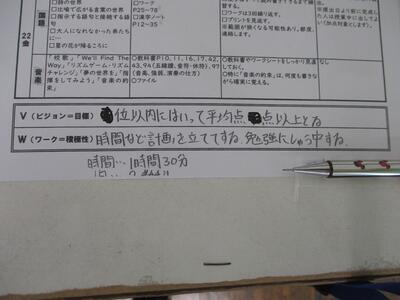 国語
□詩の世界
□比喩で広がる言葉の世界
□指示する語句と接続する語句
□大人になれなかった弟たちに…
□星の花が降るころに
□ワーク
P25~78
□漢字ノート
P12~35
□ワークは3回繰り返す。
□プリントを見返す。
22
金
音楽
「校歌」「We'll Find The Way」「リズムゲーム・リズムチャレンジ」「夢の世界を」「指揮をしてみよう」「音楽の約束」
□教科書P10、11、16、17、42、43、94
□教科書やワークシートをしっかり見直しておく。
□特に「音楽の約束」は、何度も書きながら確実に覚える。
V(ビジョン=目標)
位以内にはいって平均点 点以上とる
W(ワーク=積極性)
時間など計画を立ててする。勉強にしゅう中する。
時間…1時間30分